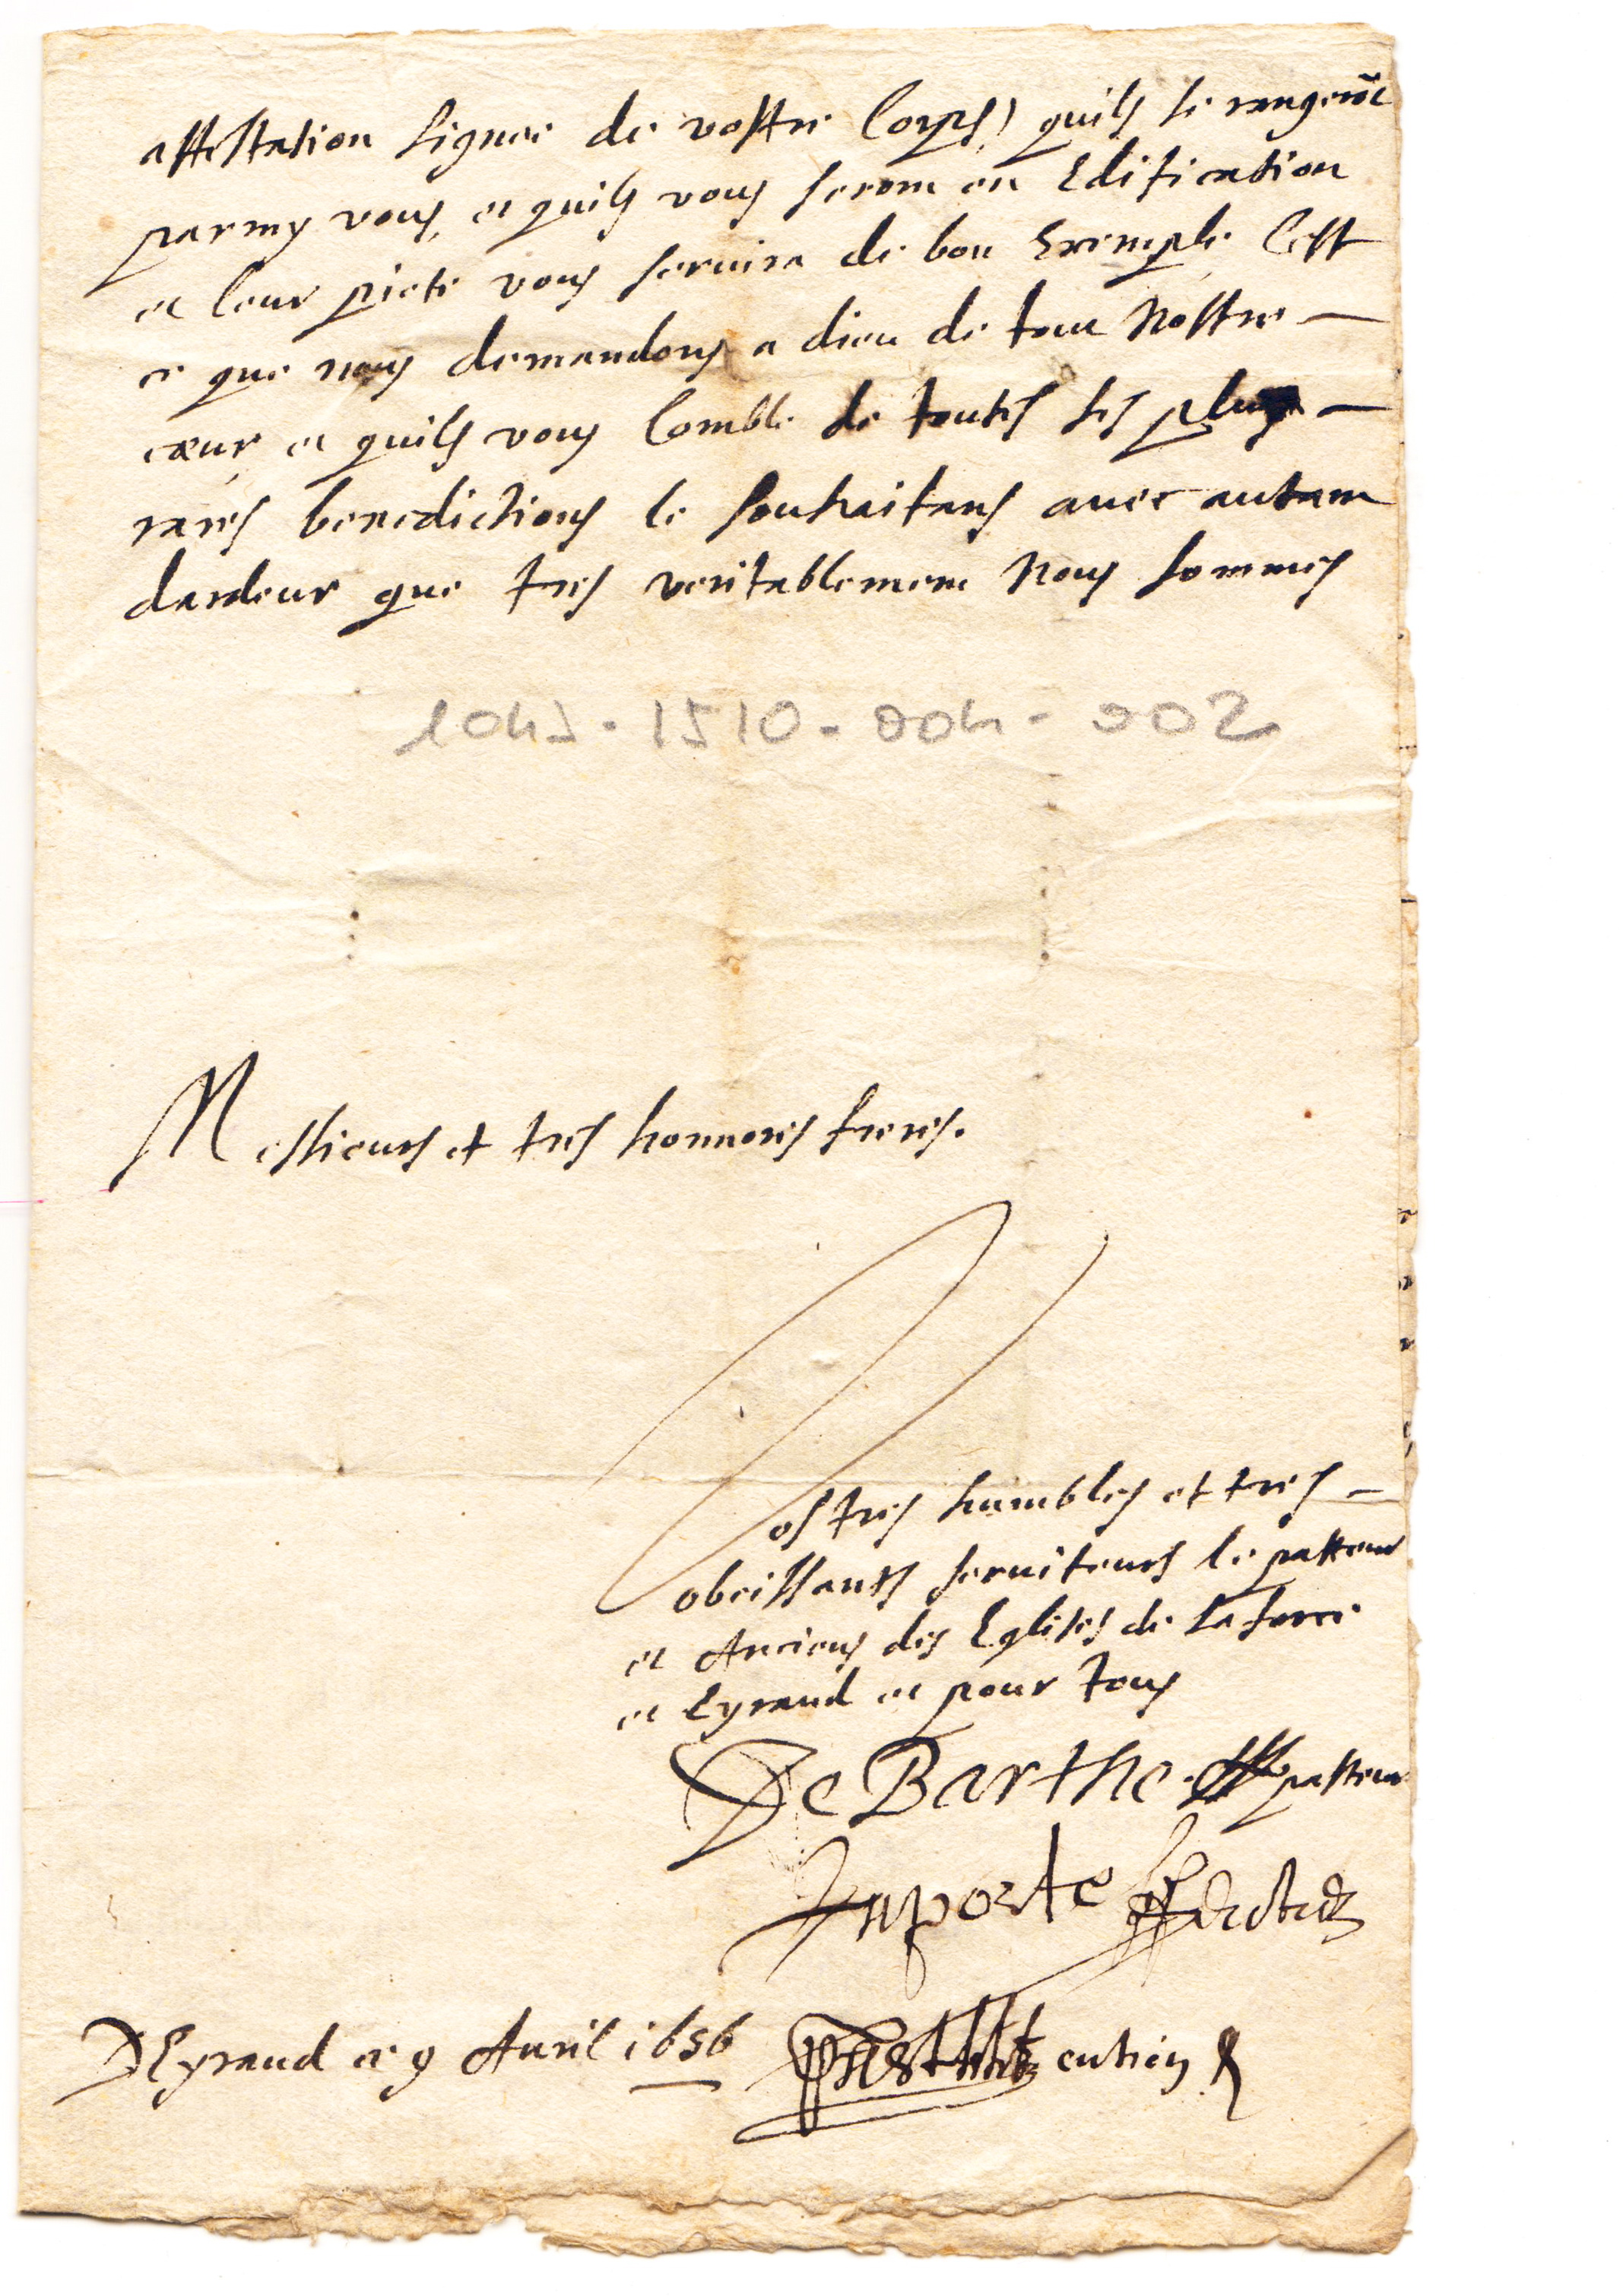 attestation signee de vostre Corps) quils se rangerōt
parmy vous, et quils vous seront en Edification
et leur pieté vous seruira de bon Exemple, Cest
ce que nous demandons a dieu de tout Nostre –
cœur et quils vous Comble de toutes ses plus –
rares benedictions le souhaitans auec autant
dardeur que tres veritablement Nous sommes
1042 - 1510 - 004 - 002
Messieurs et tres honnores freres.
Vos tres humbles et tres –
obeissants seruiteurs le pasteur
et Anciens des Eglises de Laforce
et Eyraud et pour tous
De Barthe pasteur
Laporte
DEyraud ce 9 Auril 1656 entien